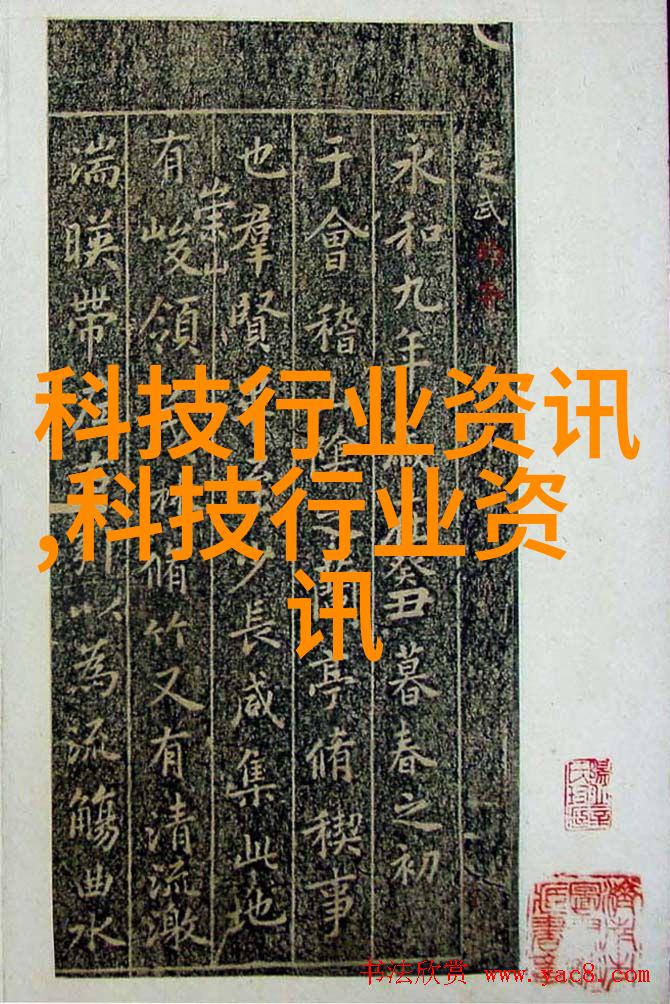 定武
永和九年歲在癸丑暮春之初
于會稽山陰之蘭亭脩稧事
也羣賢畢至少長咸集此地
有崇山峻領茂林脩竹又有清流激
湍暎帶左右引以為流觴曲水
科技行业资讯
,科技行业资
讯
书法欣赏 www.yac8.com